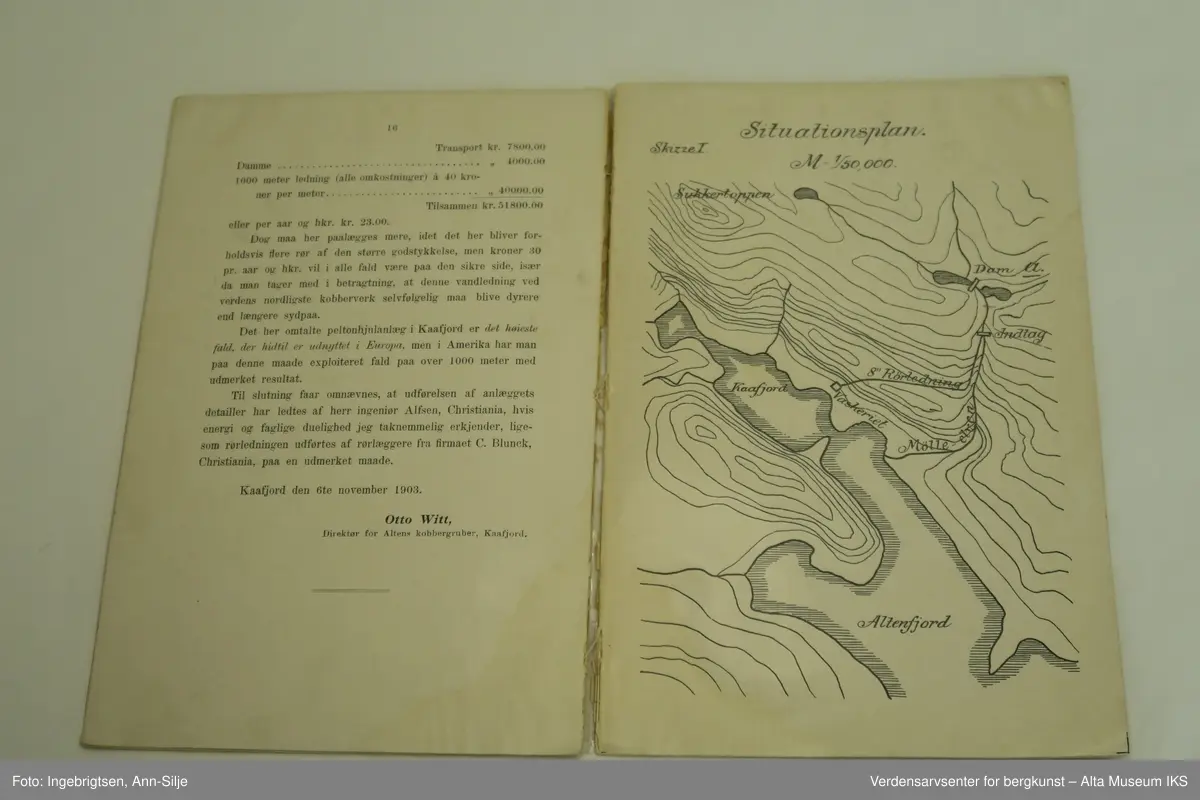 16
Transport kr. 7800.00
Damme . . . . . . . . . . . . . . . . . . . . . . . . . . . . . . . . „ 4000.00
1000 meter ledning (alle omkostninger) à 40 kro-
ner per meter. . . . . . . . . . . . . . . . . . . . . . . . „ 40000.00
Tilsammen kr. 51800.00
eller per aar og hkr. kr. 23.00.
Dog maa her paalægges mere, idet det her bliver for-
holdsvis flere rør af den større godstykkelse, men kroner 30
pr. aar og hkr. vil i alle fald være paa den sikre side, især
da man tager med i betragtning, at denne vandledning ved
verdens nordligste kobberverk selvfølgelig maa blive dyrere
end længere sydpaa.
Det her omtalte peltonhjulanlæg i Kaafjord er det høieste
fald, der hidtil er udnyttet i Europa, men i Amerika har man
paa denne maade exploiteret fald paa over 1000 meter med
udmerket resultat.
Til slutning faar omnævnes, at udførelsen af anlæggets
detailler har ledtes af herr ingeniør Alfsen, Christiania, hvis
energi og faglige duelighed jeg taknemmelig erkjender, lige-
som rørledningen udførtes af rørlæggere fra firmaet C. Blunck,
Christiania, paa en udmerket maade.
Kaafjord den 6te november 1903.
Otto Witt,
Direktør for Altens kobbergruber, Kaafjord.
Situationsplan.
Skizze I
M = 1/50,000.
Sukkertoppen
Dam A.
Indtag
8" Rörledning
Kaafjord
Vaskeriet
Mölle elven
Altenfjord
Foto: Ingebrigtsen, Ann-Silje
Verdensarvsenter for bergkunst – Alta Museum IKS